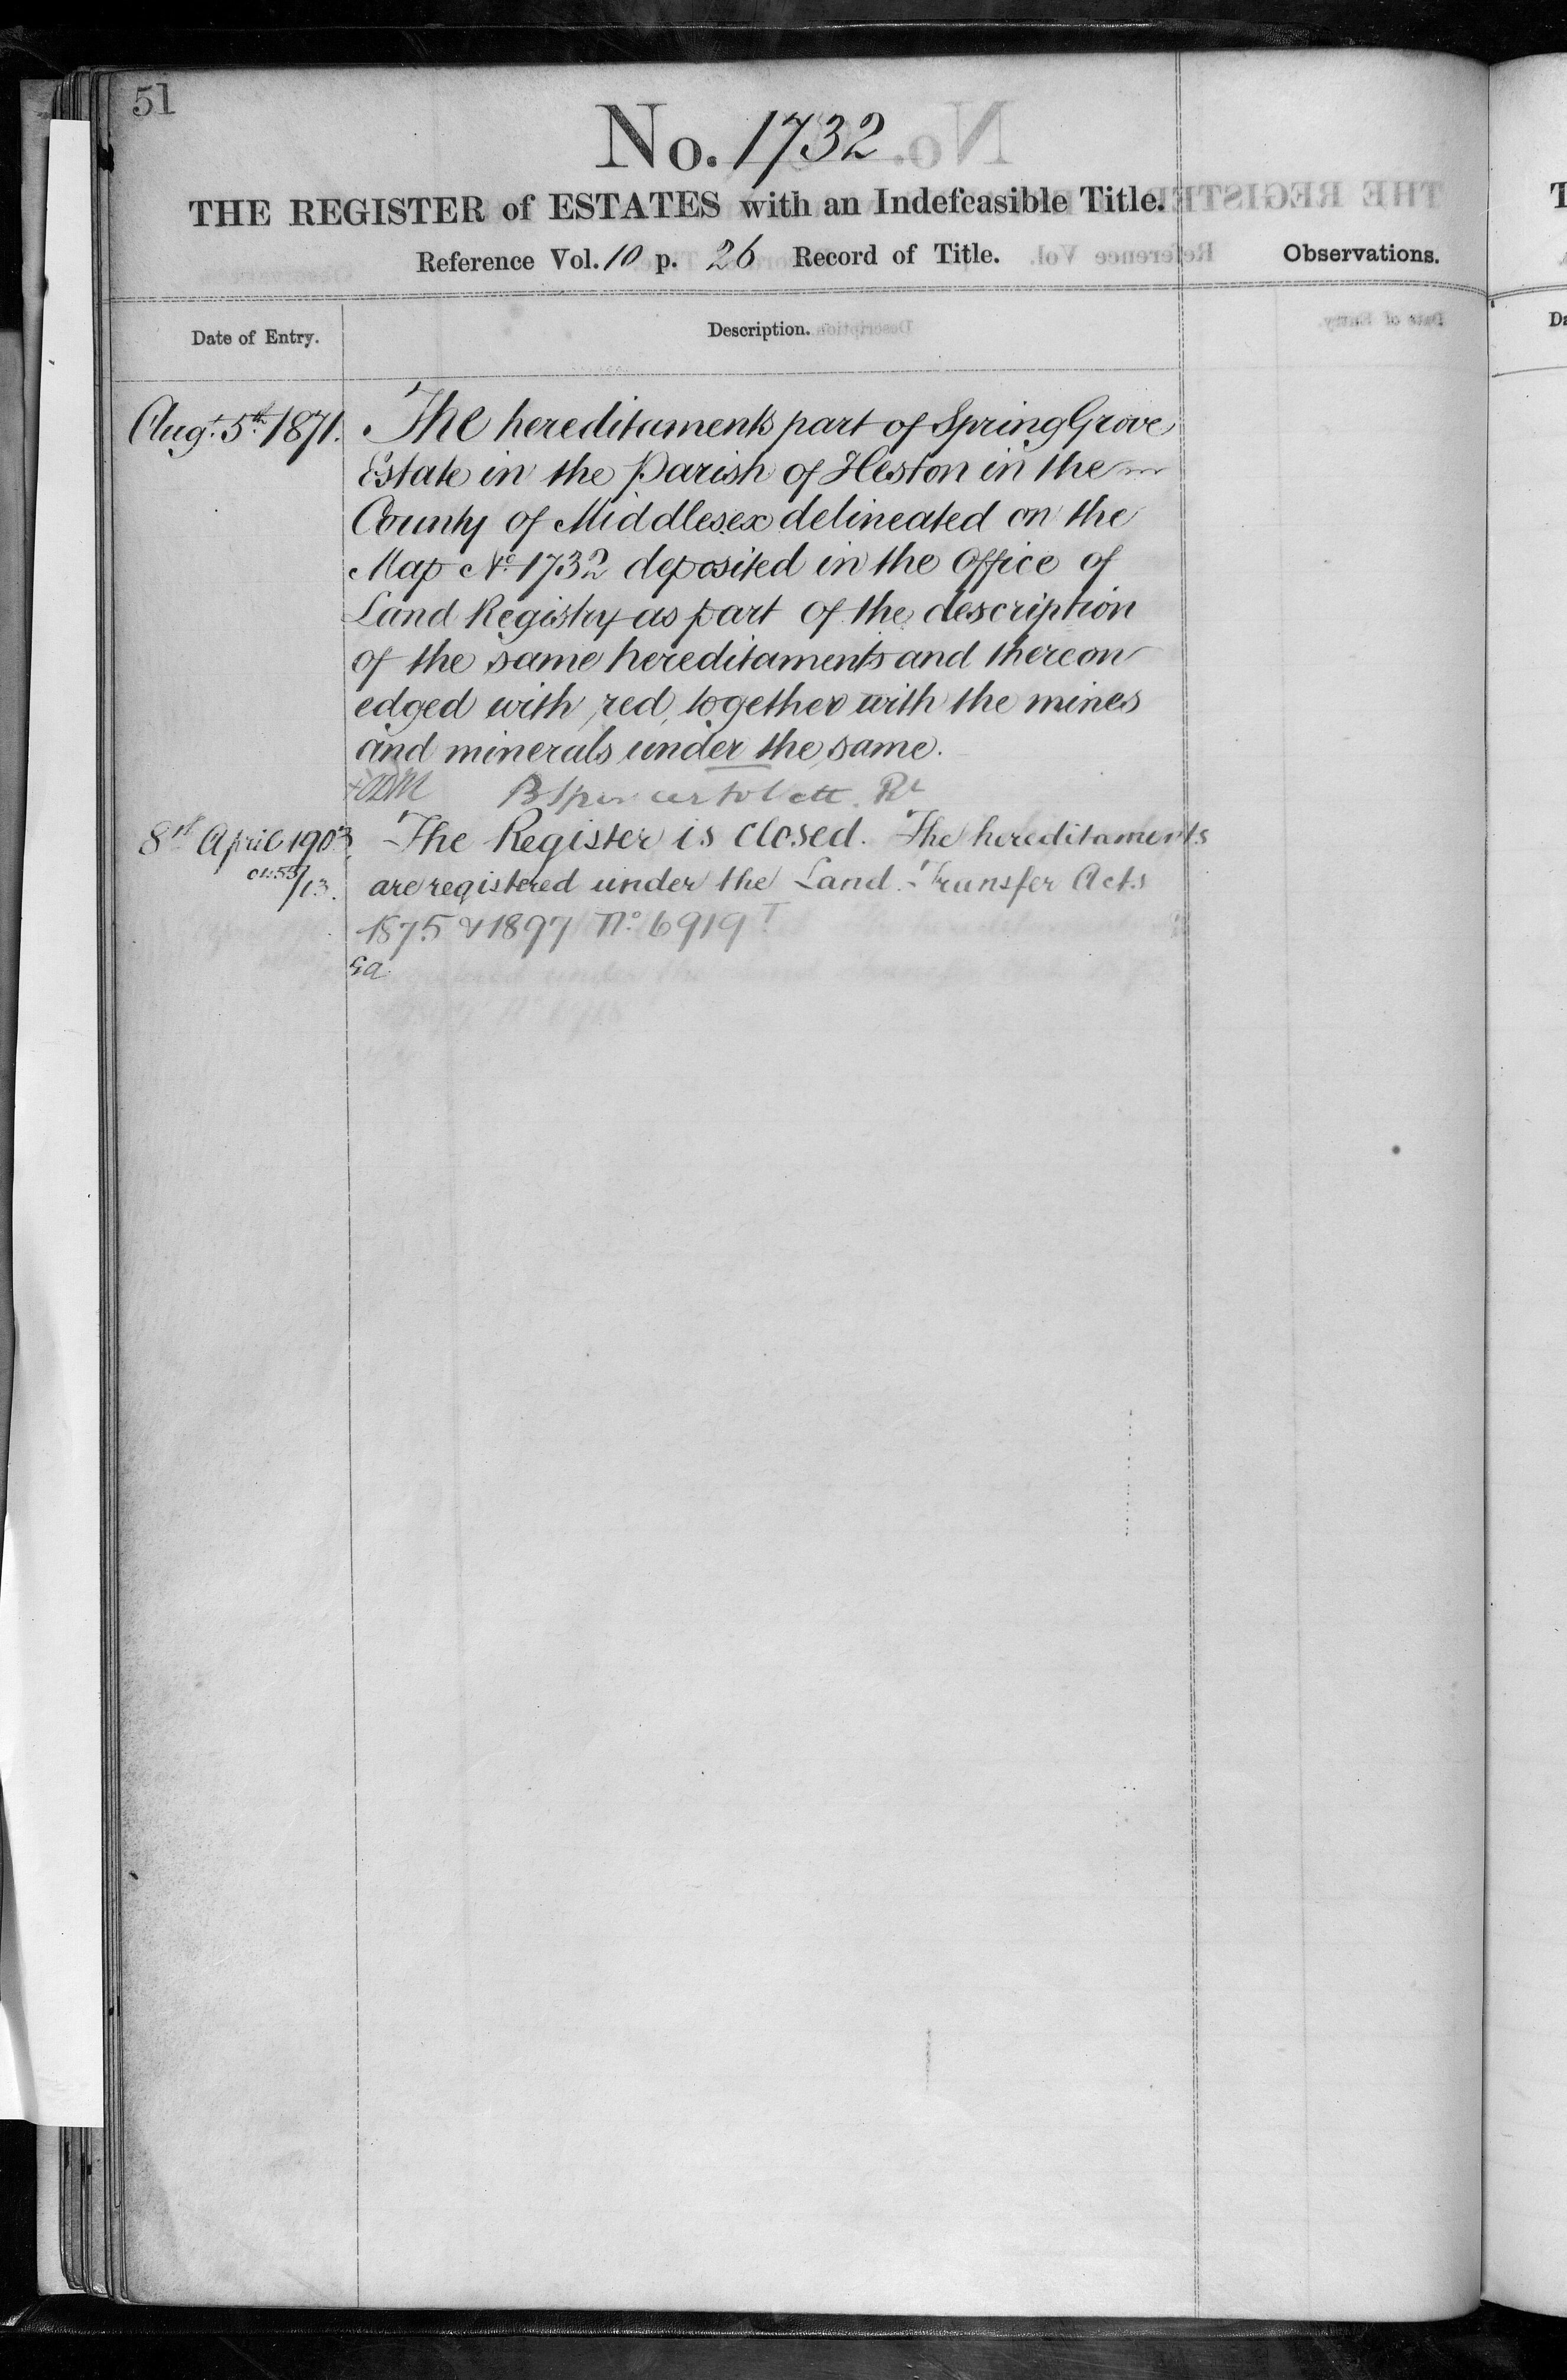 51
No. 1732
THE REGISTER of ESTATES with an Indefeasible Title.
Reference Vol. 10 p. 26 Record of Title.
Observations.
Date of Entry.
Description.
Augt. 5th 1871.
The hereditaments part of Spring Grove
Estate in the Parish of Heston in the
County of Middlesex delineated on the
Map No. 1732 deposited in the Office of
Land Registry as part of the description
of the same hereditaments and thereon
edged with red, together with the mines
and minerals under the same.
8th April 1903
The Register is closed. The hereditaments
/13.
are registered under the Land Transfer Acts
1875 & 1897 No. 6919